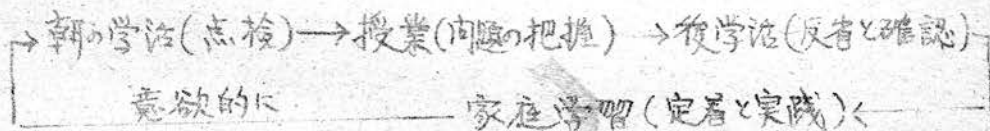 →朝の学活(点検)→授業(問題の把握)→後学活(反省と確認)
意欲的に 家庭学習(定着と実践)